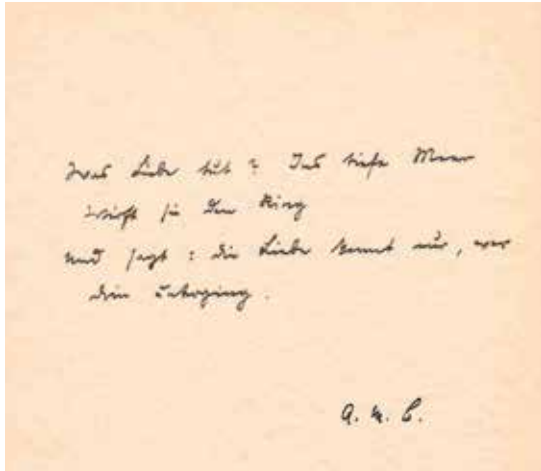 Was Liebe tut? Ins tiefe Meer
wirft sie den Ring
und sagt: die Liebe kennt nur, wer
drin unterging.
A. M. C.